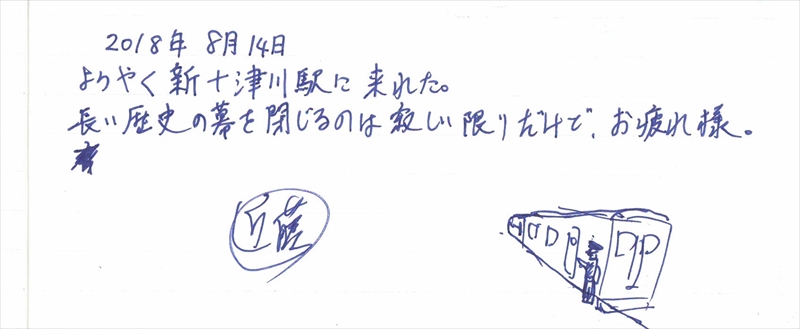 2018年 8月14日
ようやく新十津川駅に来れた。
長い歴史の幕を閉じるのは寂しい限りだけど、お疲れ様。
近藤